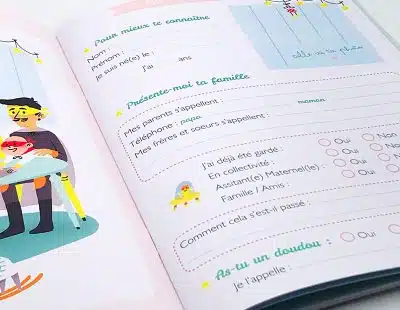 Pour mieux te connaître
Nom :
Prénom :
Je suis né(e) le :
J'ai ans
colle ici ta photo
Présente-moi ta famille
Mes parents s'appellent :
Téléphone : papa maman
Mes frères et soeurs s'appellent :
J'ai déjà été gardé : Oui Non
En collectivité : Oui Non
Assitant(e) Maternel(le) : Oui Non
Famille / Amis : Oui
Comment cela s'est-il passé :
As-tu un doudou : Oui
Je l'appelle :